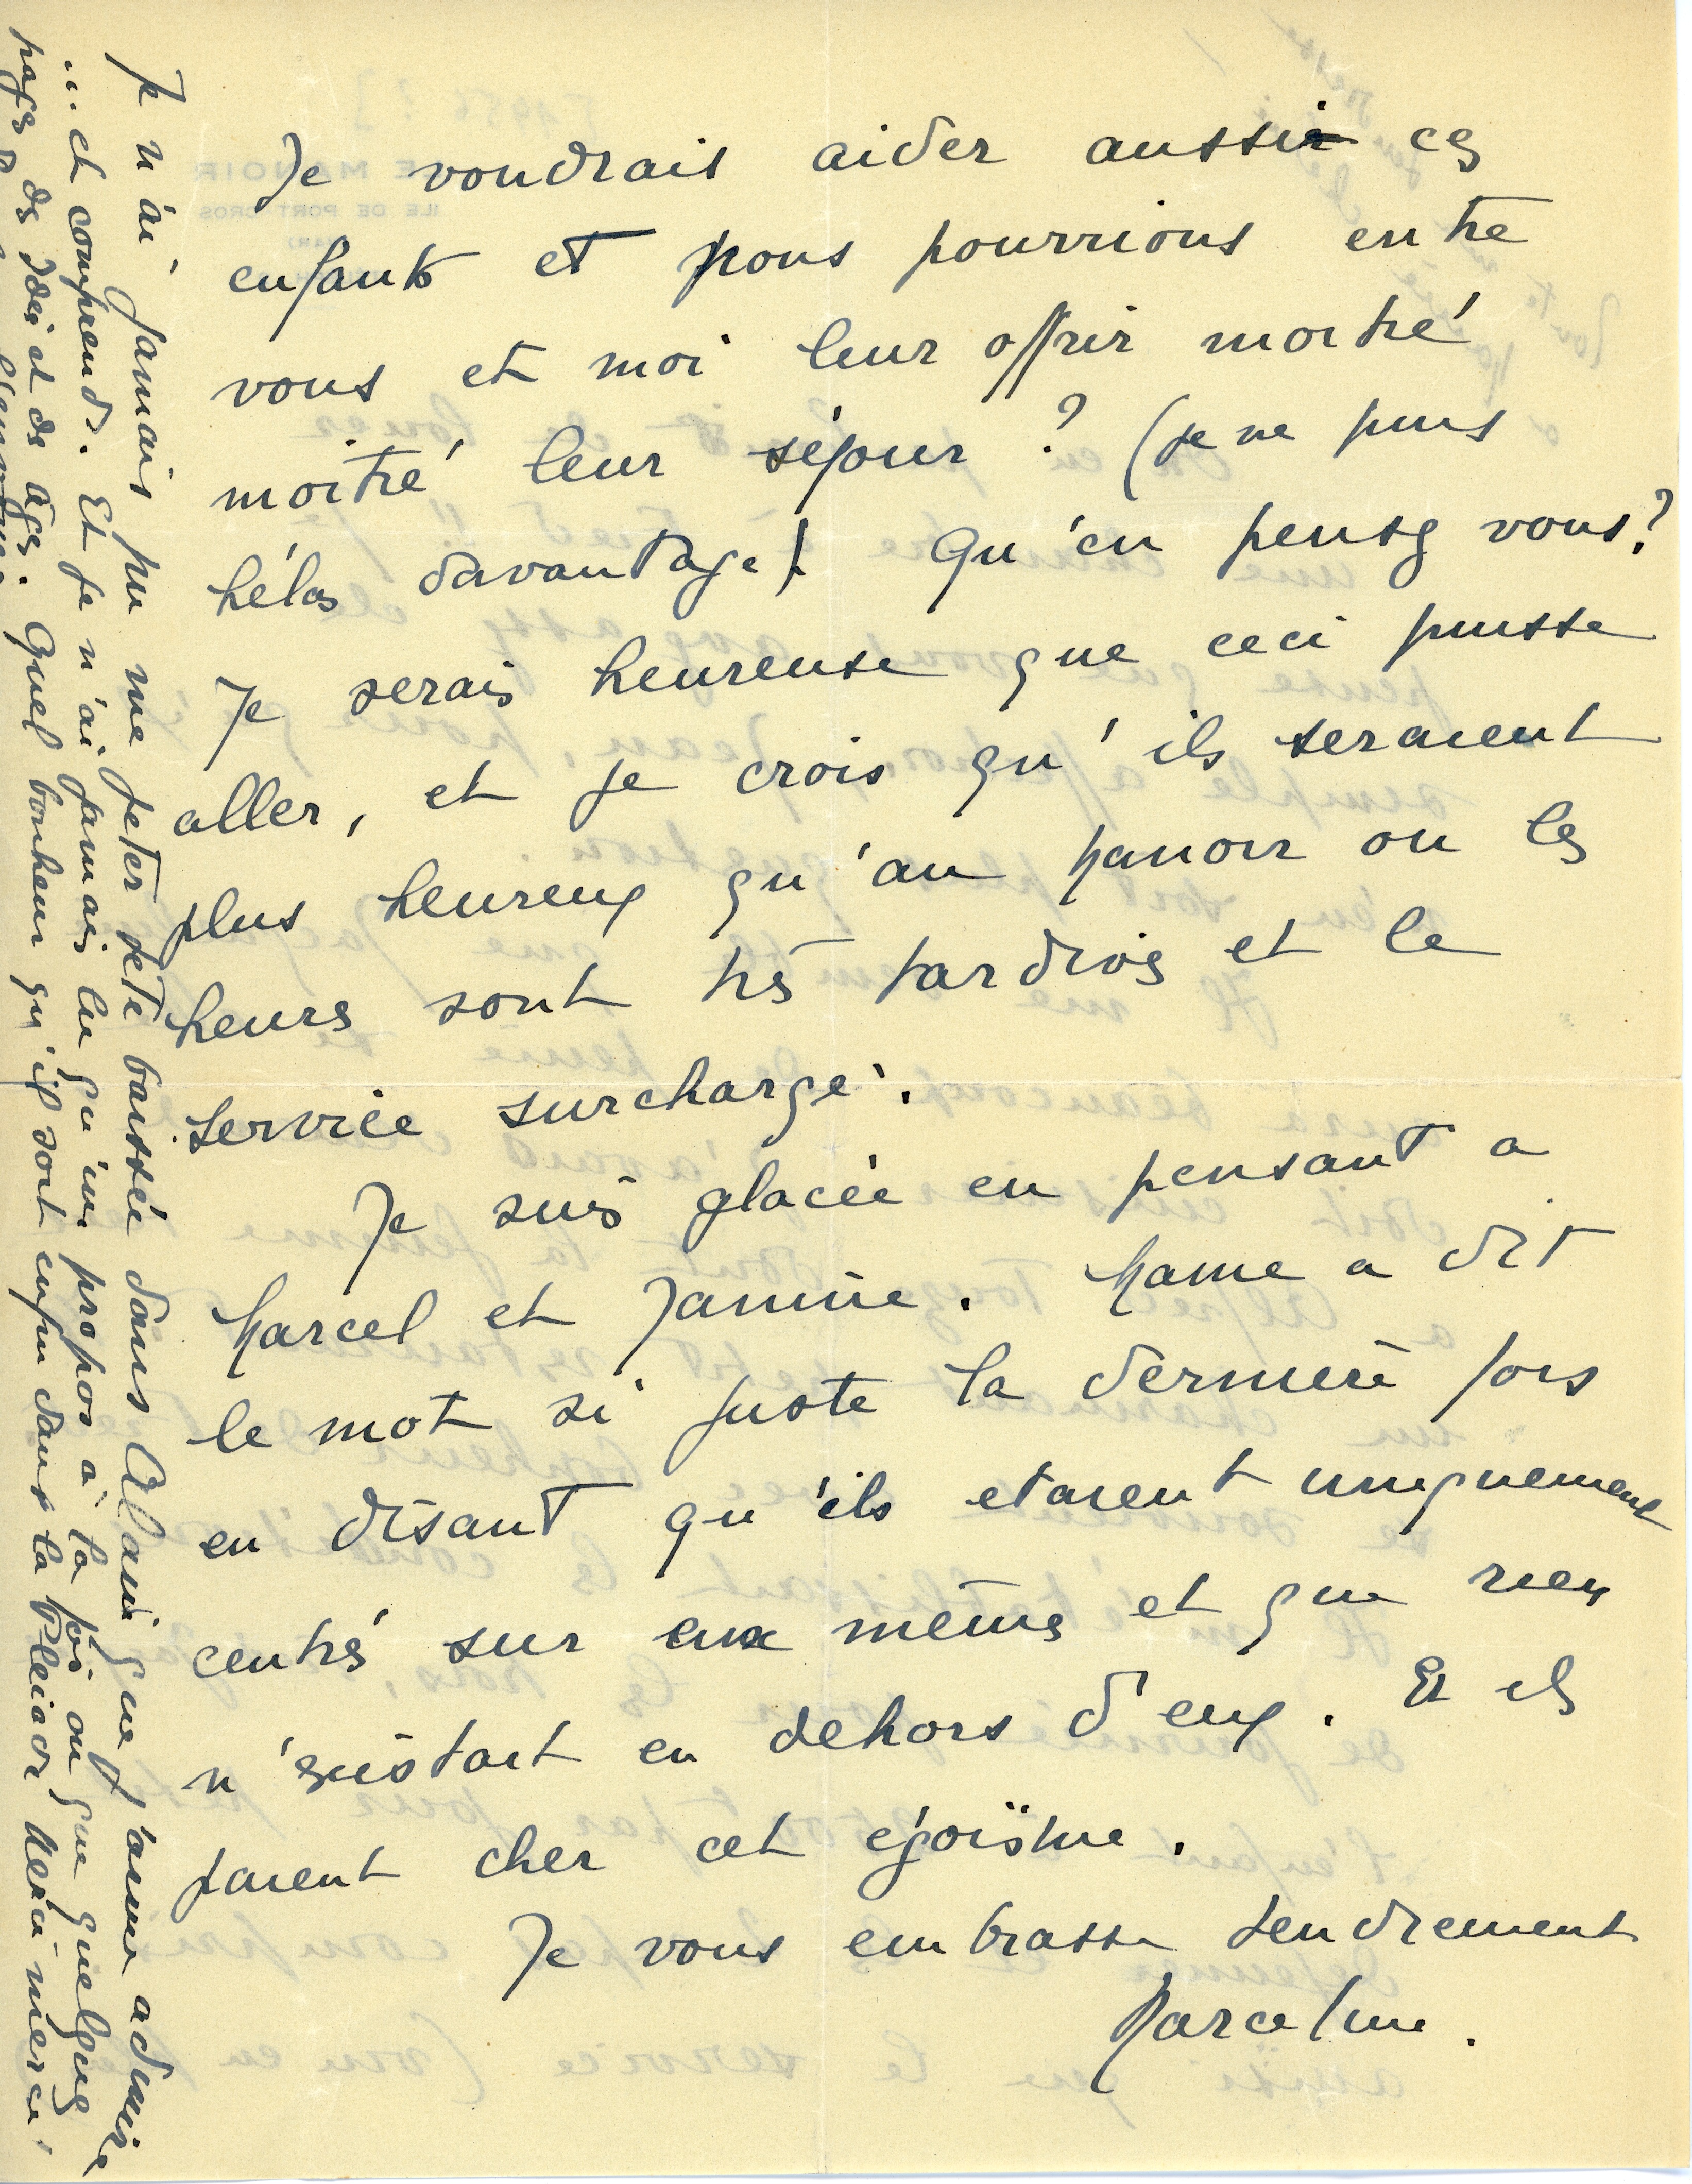 Je voudrais aider aussi ces
enfants et nous pourrions entre
vous et moi leur offrir moitié
moitié leur séjour ? (je ne puis
hélas davantage) Qu'en pensez vous ?
Je serais heureuse que ceci puisse
aller, et je crois qu'ils seraient
plus heureux qu'au Manoir ou les
heures sont très tardives et le
service surchargé.
Je suis glacée en pensant a
Marcel et Janine. Mame a dit
le mot si juste la dernière fois
en disant qu'ils etaient uniquement
centrés sur eux mêmes et que rien
n'existait en dehors d'eux. Et ils
paient cher cet égoïsme.
Je vous embrasse tendrement
Marceline.
Je n'ai jamais pu me jeter tete baissée dans Alain que t'aime admire
... et comprends. Et je n'ai jamais lu qu'un propos à la fois ou que quelques
pages des Idées et des âges. Quel bonheur qu'il soit enfin dans la Pleiade Merci merci.